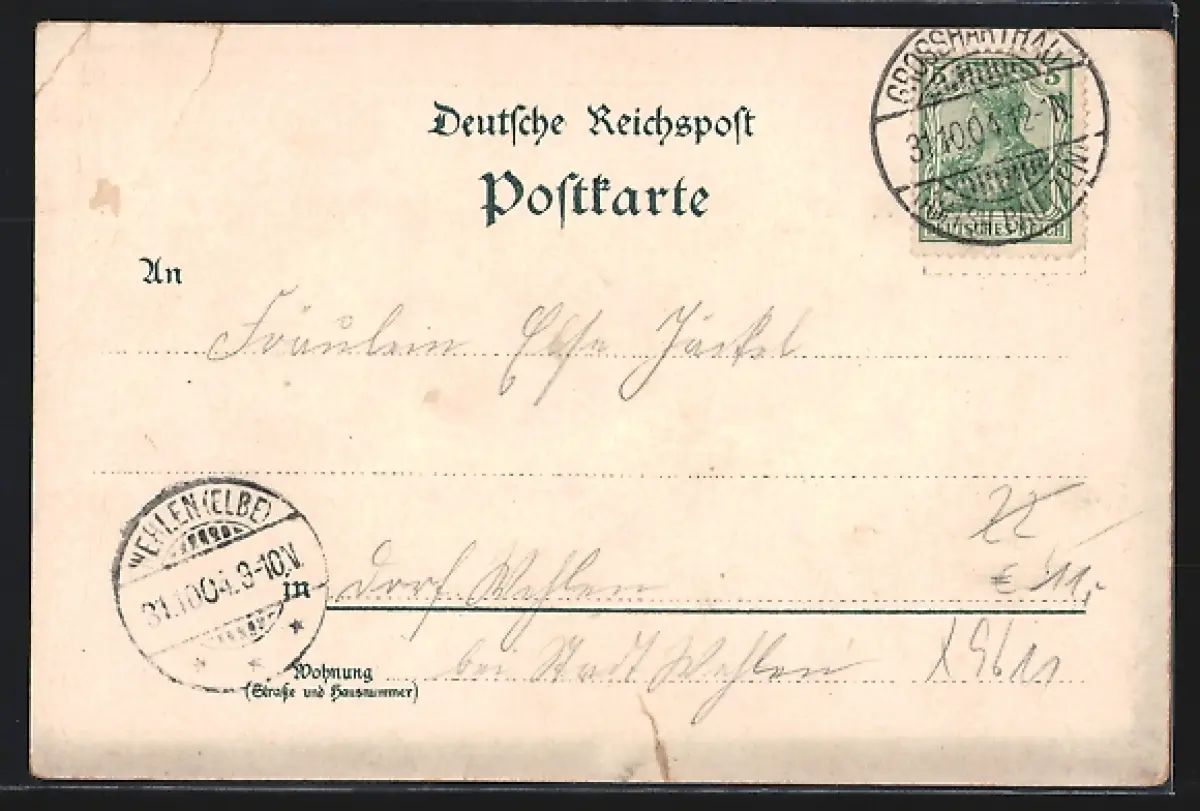 GROSSHARTHAU
31.10.04.12-1N.
5
DEUTSCHES REICH
Deutsche Reichspost
Postkarte
An
Fräulein Else Jäckel
WEHLEN (ELBE)
31.10.04. 9-10V.
in Dorf Wehlen
22
€ 11,-
Wohnung
(Straße und Hausnummer)
bei Stadt Wehlen